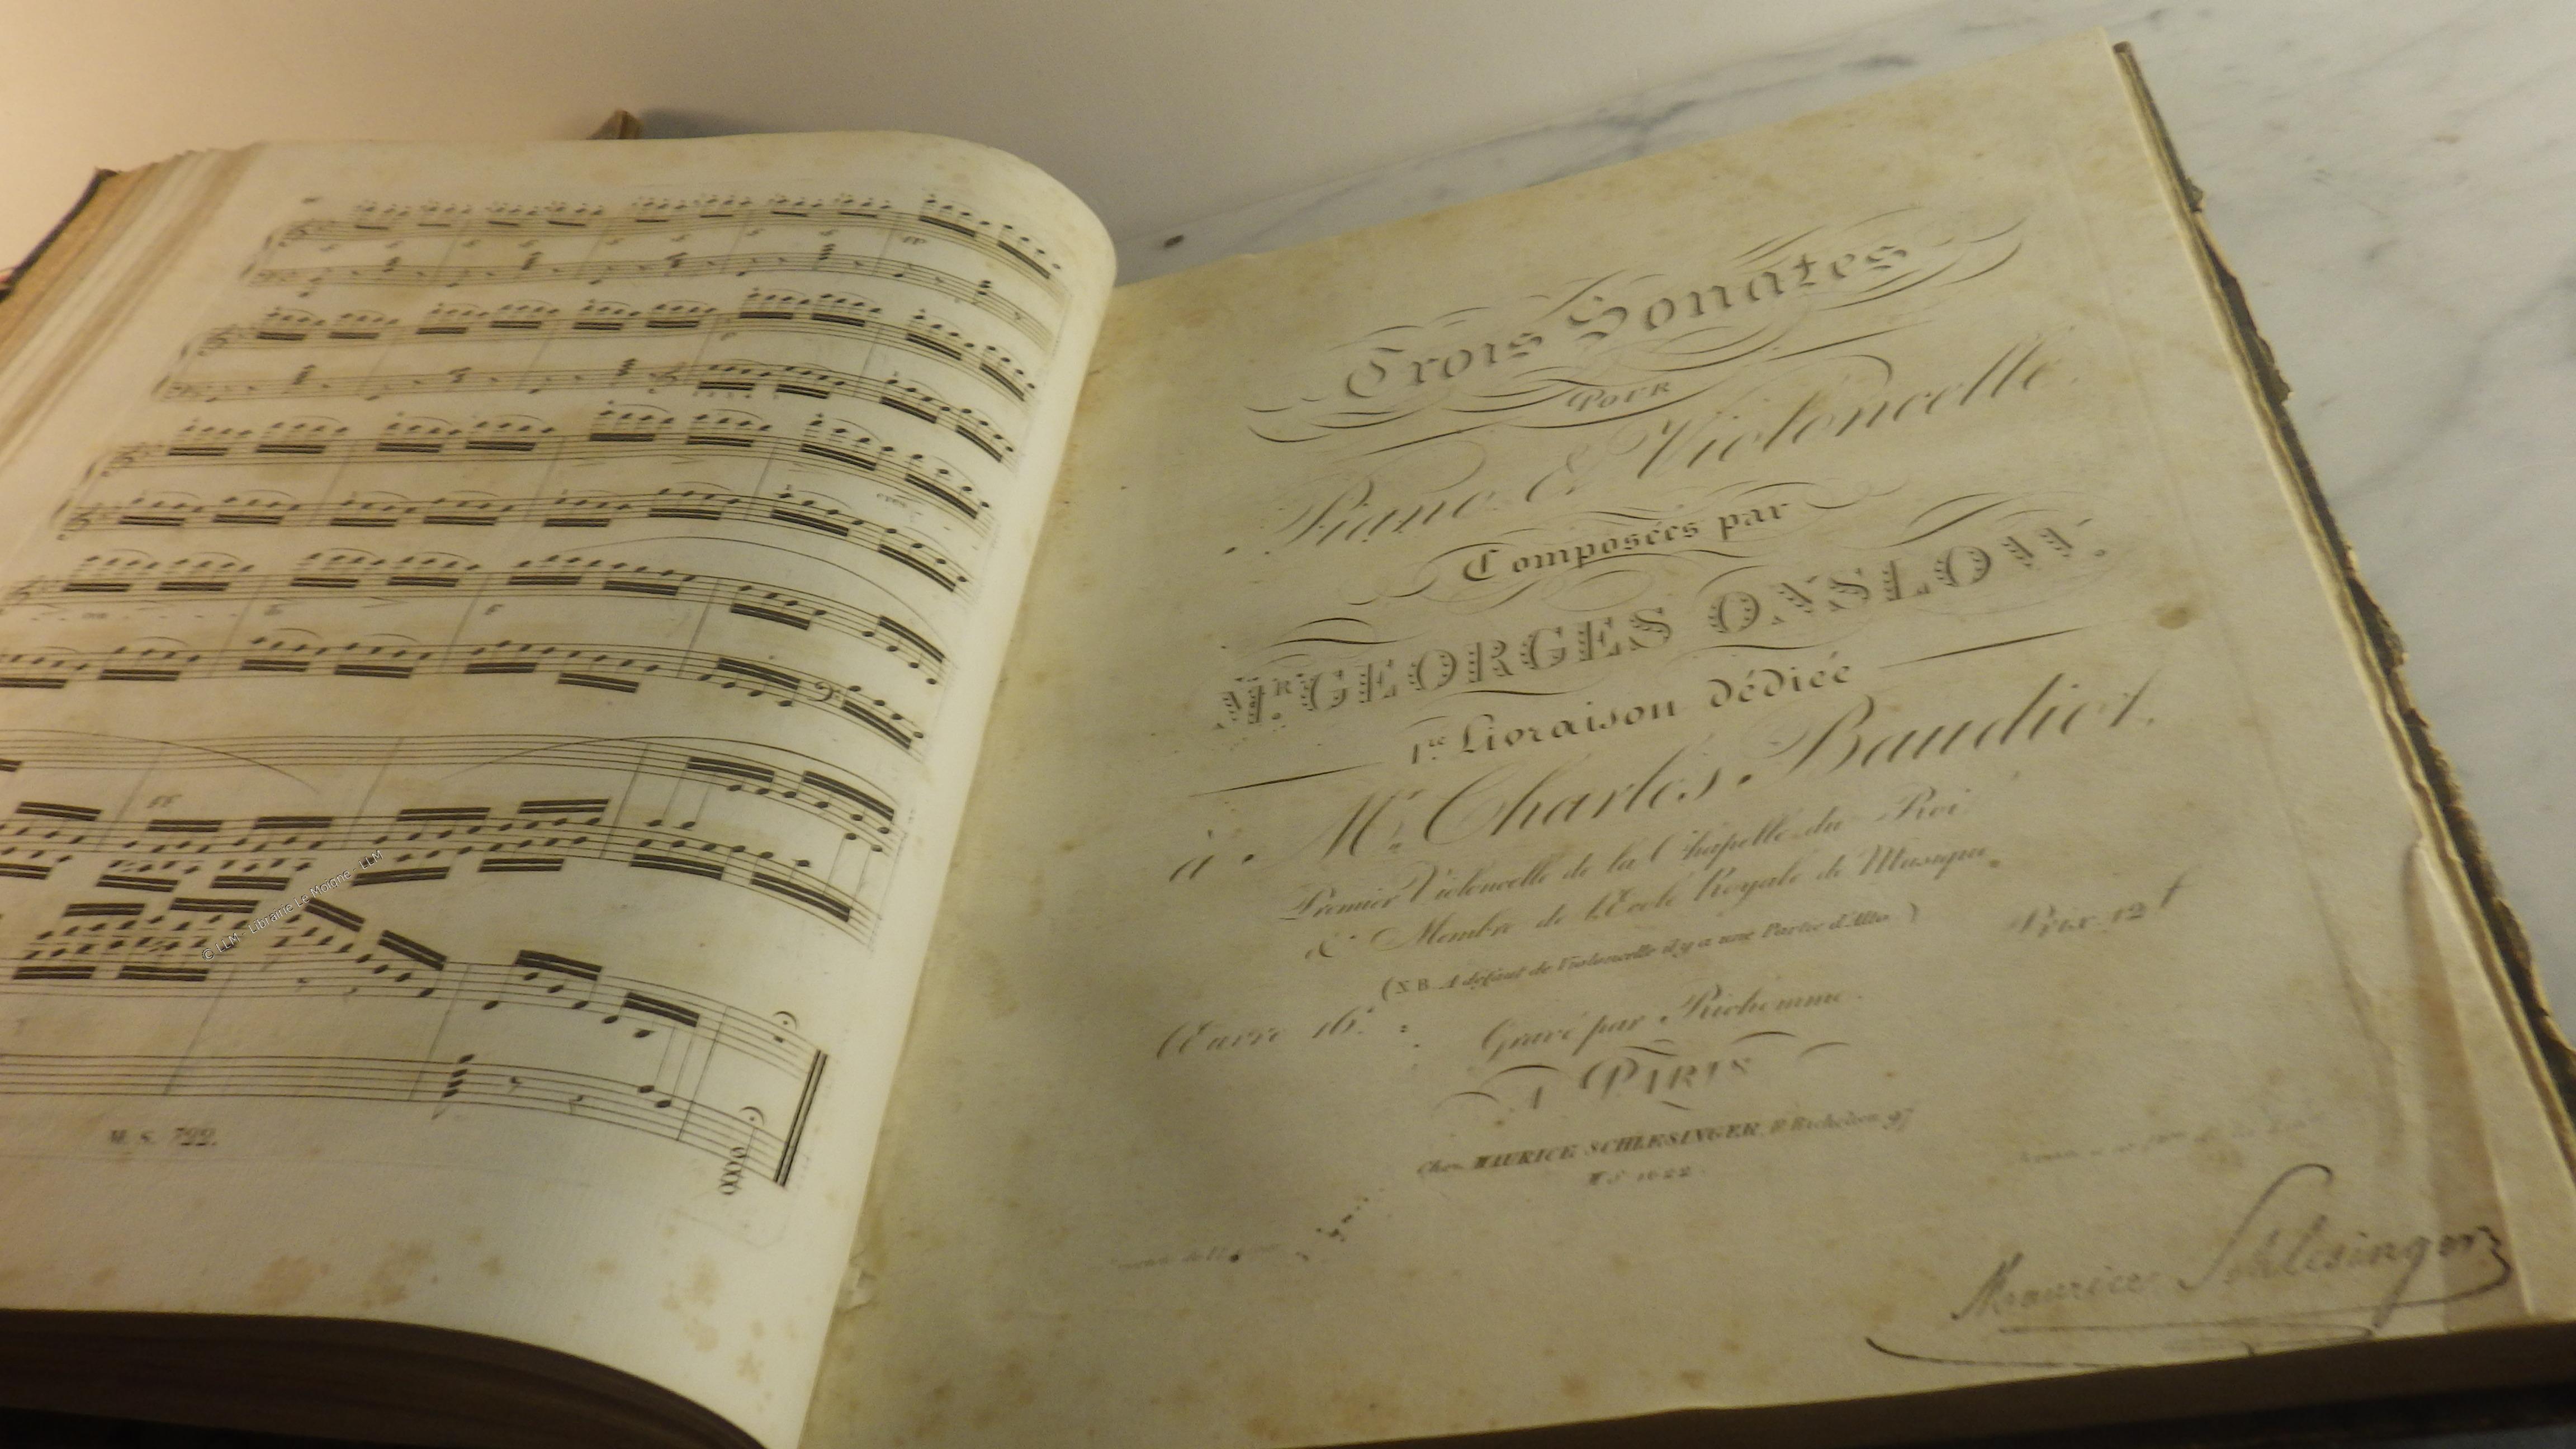 cres
cen
FF
© LLM - Librairie Le Moigne - LLM
M. S. 722.
Trois Sonates
POUR
Piano & Violoncelle
Composées par
MR. GEORGES ONSLOW.
1re. Livraison dédiée
à Mr. Charles Baudiot,
Premier Violoncelle de la Chapelle du Roi
& Membre de l'Ecole Royale de Musique.
(N.B. A défaut de Violoncelle il y a une Partie d'Alto.)
Prix. 12f
Œuvre 16e.
Gravé par Richomme.
A PARIS
Chez MAURICE SCHLESINGER, R. Richelieu, 97
Maurice Schlesinger